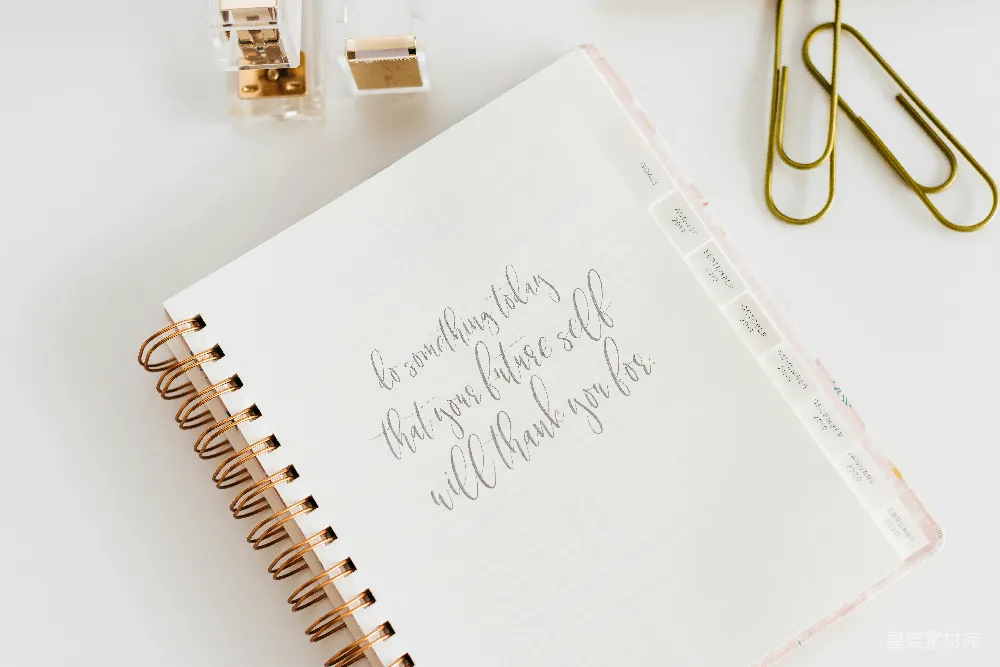 do something today
that your future self
will thank you for.
GOALS
AUGUST
2019
SEPTEMBER
OCTOBER
NOVEMBER
DECEMBER
JANUARY
2020
FEBRUARY
2020
星辰素材库